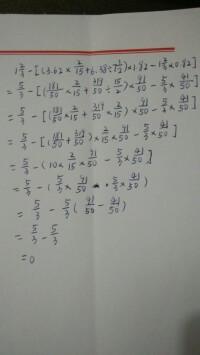 1 2/3 - [(3.62 × 2/15 + 6.38 ÷ 7 1/2) × 1.82 - 1 2/3 × 0.82]
= 5/3 - [(181/50 × 2/15 + 319/50 ÷ 15/2) × 91/50 - 5/3 × 41/50]
= 5/3 - [(181/50 × 2/15 + 319/50 × 2/15) × 91/50 - 5/3 × 41/50]
= 5/3 - [(181/50 + 319/50) × 2/15 × 91/50 - 5/3 × 41/50]
= 5/3 - (10 × 2/15 × 91/50 - 5/3 × 41/50]
= 5/3 - (5/3 × 91/50 - 5/3 × 41/50)
= 5/3 - 5/3 (91/50 - 41/50)
= 5/3 - 5/3
= 0